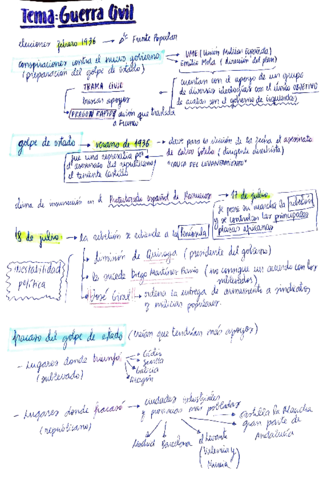 Tema: Guerra Civil
elecciones febrero 1936 → Frente Popular
conspiraciones contra el nuevo gobierno
(preparación del golpe de estado)
UME (Unión Militar Española)
Emilio Mola (dirección del plan)
TRAMA CIVIL
buscar apoyos
DRAGON RAPIDE avión que traslada
a Franco
cuentan con el apoyo de un grupo
de diversas ideologías con el único OBJETIVO
de acabar con el gobierno de izquierdas
golpe de estado → verano de 1936 → clave para la elección de la fecha el asesinato
de Calvo Sotelo (dirigente derechista)
que una represalia por
el asesinato del republicano
el teniente Castillo
"CAUSA DEL LEVANTAMIENTO"
clima de insurrección en el Protectorado español de Marruecos
17 de julio
se pone en marcha la rebelión
y se controlan las principales
plazas africanas
18 de julio → la rebelión se extiende a la Península
inestabilidad
política
dimisión de Quiroga (presidente del gobierno)
le sucede Diego Martínez Barrio (no consigue un acuerdo con los
militares)
José Giral → ordena la entrega de armamento a sindicatos
y milicias populares
fracaso del golpe de estado (creían que tendrían más apoyos)
- Lugares donde triunfó
(sublevado)
Cádiz
Sevilla
Galicia
Aragón
- Lugares donde fracasó
(republicano)
ciudades industriales
y provincias más pobladas
Castilla la Mancha
gran parte de
Andalucía
Madrid
Barcelona
Levante
(Valencia y
Murcia)